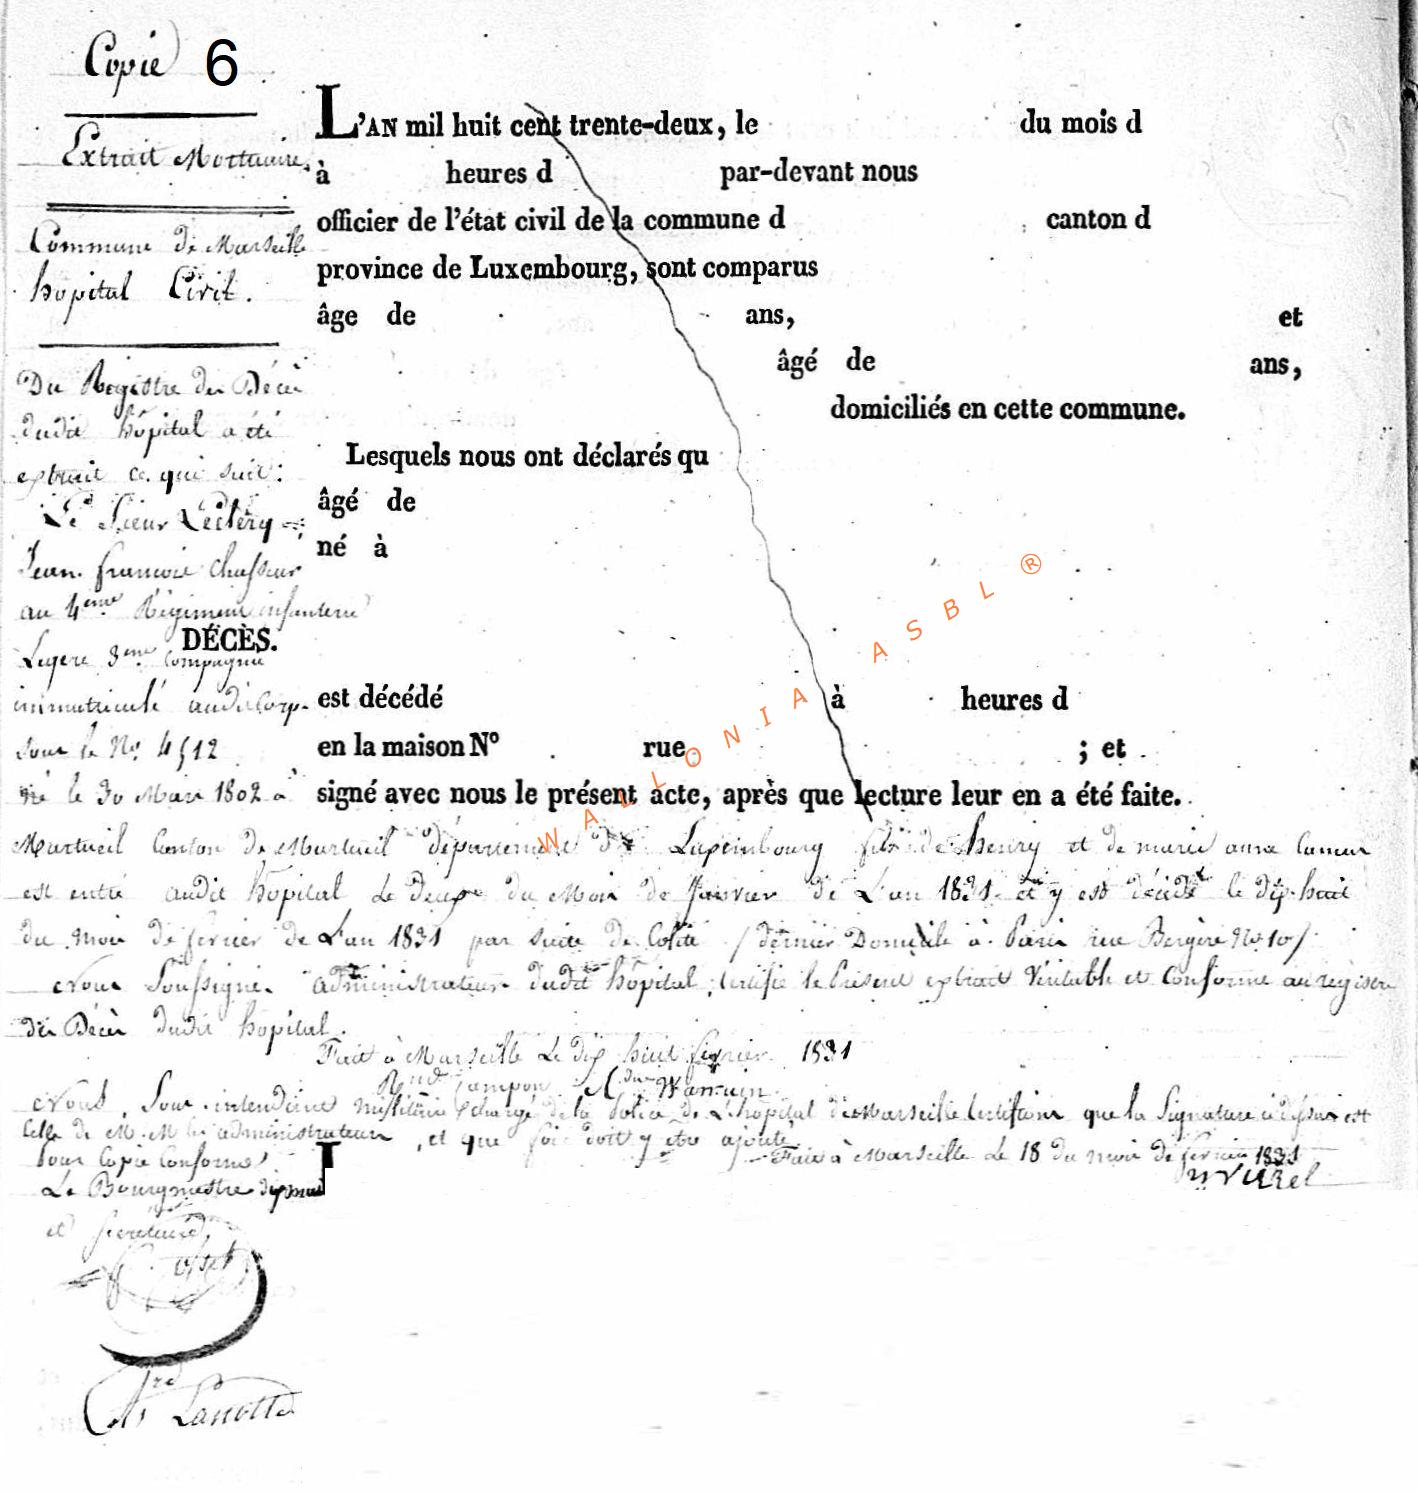 Copie 6
Extrait Mortuaire.
Commune de Marseille
hôpital Civil.
Du Registre des Décès
dudit hôpital a été
extrait ce qui suit:
Le Sieur Leclery
Jean francois chasseur
au 4eme Régiment infanterie
DÉCÈS.
Legere 3me Compagnie
immatriculé audit Corps
sous le No. 4512
né le 30 Mars 1802 à
L'AN mil huit cent trente-deux, le du mois d
à heures d par-devant nous
officier de l'état civil de la commune d canton d
province de Luxembourg, sont comparus
âge de ans, et
âgé de ans,
domiciliés en cette commune.
Lesquels nous ont déclarés qu
âgé de
né à
est décédé à heures d
en la maison N° rue ; et
signé avec nous le présent acte, après que lecture leur en a été faite.
WALLONIA ASBL ®
Martueil Canton de Martueil département de Luxembourg fils de henry et de marie anne
est entré audit hôpital Le deux du Mois de Janvier de L'an 1831 et y est décidé le dix-huit
du mois de fevrier de L'an 1831 par suite de Colite / dernier Domicile à Paris rue Bergere No 10 /
Nous Soussigné administrateur dudit hôpital, certifie le Présent extrait Véritable et Conforme au registre
des Décès dudit hôpital.
Fait à Marseille Le dix huit fevrier 1831
Nous, Sous-intendant militaire chargé de la Police de L'hopital de Marseille Certifions que la Signature ci dessus est
Celle de M.M les administrateurs, et que foi doit y être ajouté
Fait à Marseille Le 18 du mois de fevrier 1831
Pour Copie Conforme
Le Bourgmestre
et Secretaire,
Lanotte